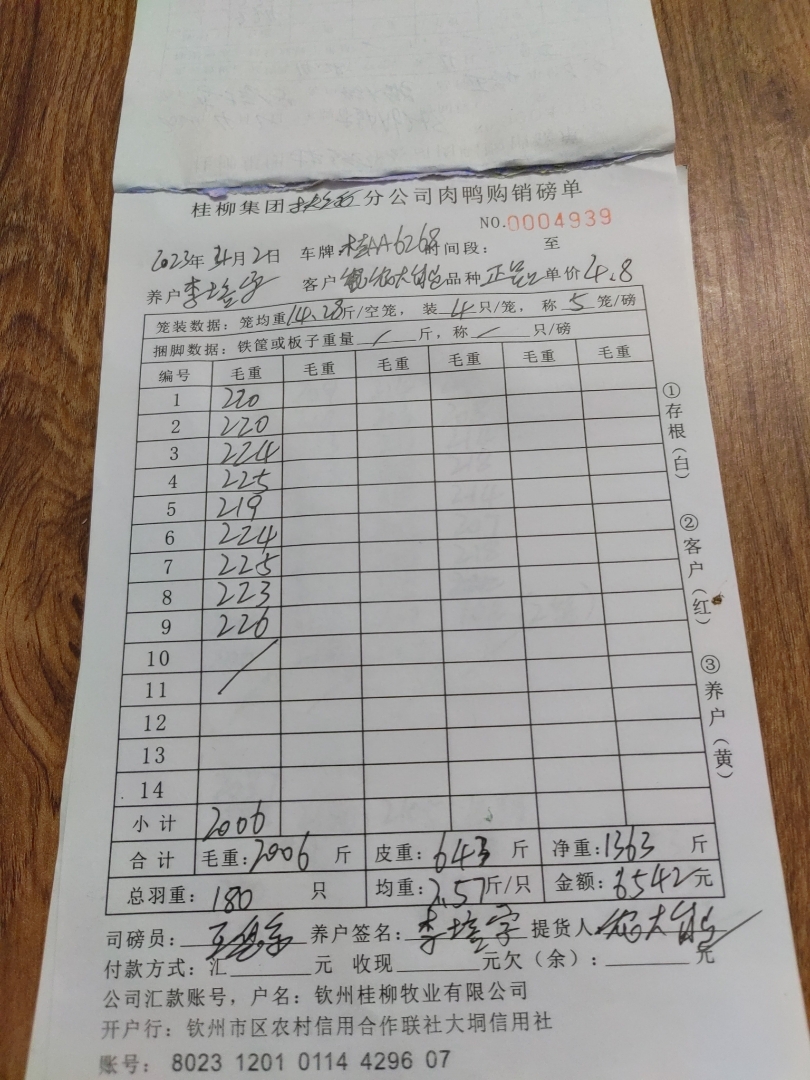 桂柳集团 分公司肉鸭购销磅单
NO.0004939
2023年 3月2日 车牌 桂AA6268 时间段: 至
养户 李 客户 大 品种 正品 单价 4.8
笼装数据:笼均重14.28斤/空笼,装 4 只/笼,称 5 笼/磅
捆脚数据:铁筐或板子重量 / 斤,称 / 只/磅
编号 毛重 毛重 毛重 毛重 毛重 毛重
1 220
2 220
3 224
4 225
5 219
6 224
7 225
8 223
9 226
10
11
12
13
14
小计 2006
合计 毛重:2006 斤 皮重:643 斤 净重:1363 斤
总羽重: 180 只 均重:7.57斤/只 金额:6542元
司磅员: 养户签名:李 提货人 大
付款方式:汇 元 收现 元欠(余): 元
公司汇款账号,户名:钦州桂柳牧业有限公司
开户行:钦州市区农村信用合作联社大垌信用社
账号: 8023 1201 0114 4296 07
①存根(白)
②客户(红)
③养户(黄)